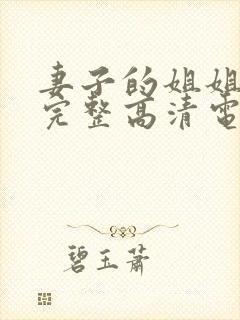 妻子的姐姐
完整高清電
碧玉蕭